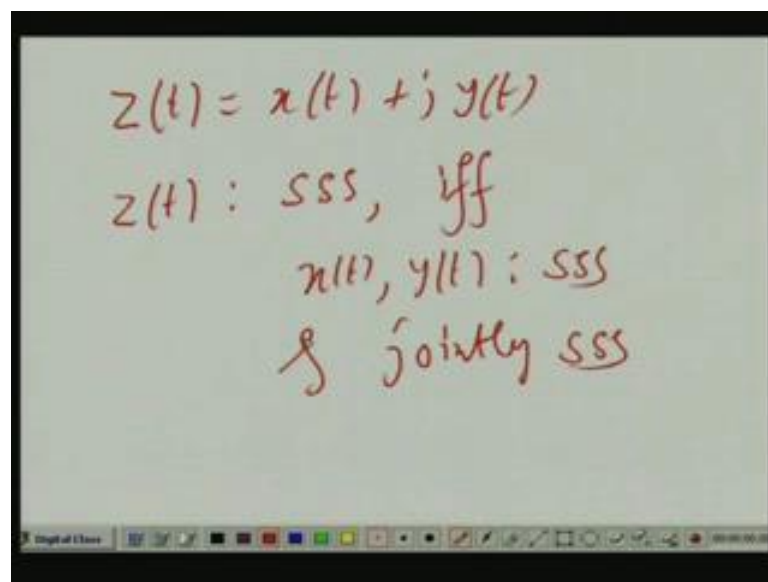 z(t) = x(t) + j y(t)
z(t) : SSS, iff
x(t), y(t) : SSS
& jointly SSS
Digital Class